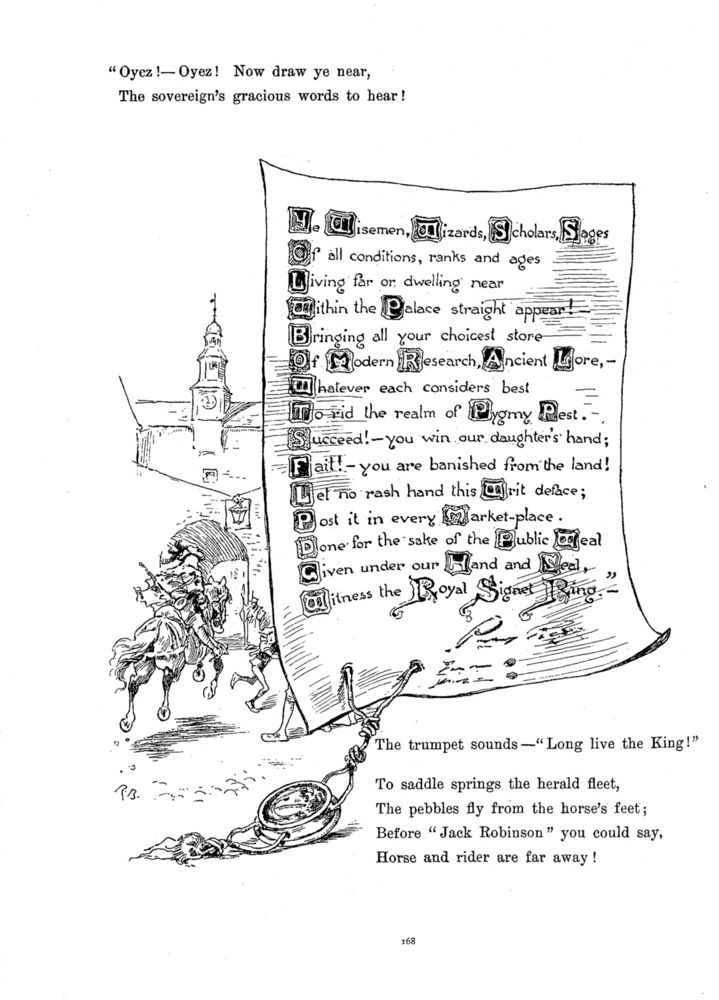 “Oyez!—Oyez! Now draw ye near,
The sovereign’s gracious words to hear!
Ye Wisemen, Wizards, Scholars, Sages
Of all conditions, ranks and ages
Living far or dwelling near
Within the Palace straight appear!—
Bringing all your choicest store
Of Modern Research, Ancient Lore,—
Whatever each considers best
To rid the realm of Pygmy Pest.—
Succeed!—you win our daughter’s hand;
Fail!—you are banished from the land!
Let no rash hand this Writ deface;
Post it in every Market-place.
Done for the sake of the Public Weal
Given under our Hand and Seal,
Witness the Royal Signet Ring.—”
The trumpet sounds—“Long live the King!”
To saddle springs the herald fleet,
The pebbles fly from the horse’s feet;
Before “Jack Robinson” you could say,
Horse and rider are far away!
R.B.
168